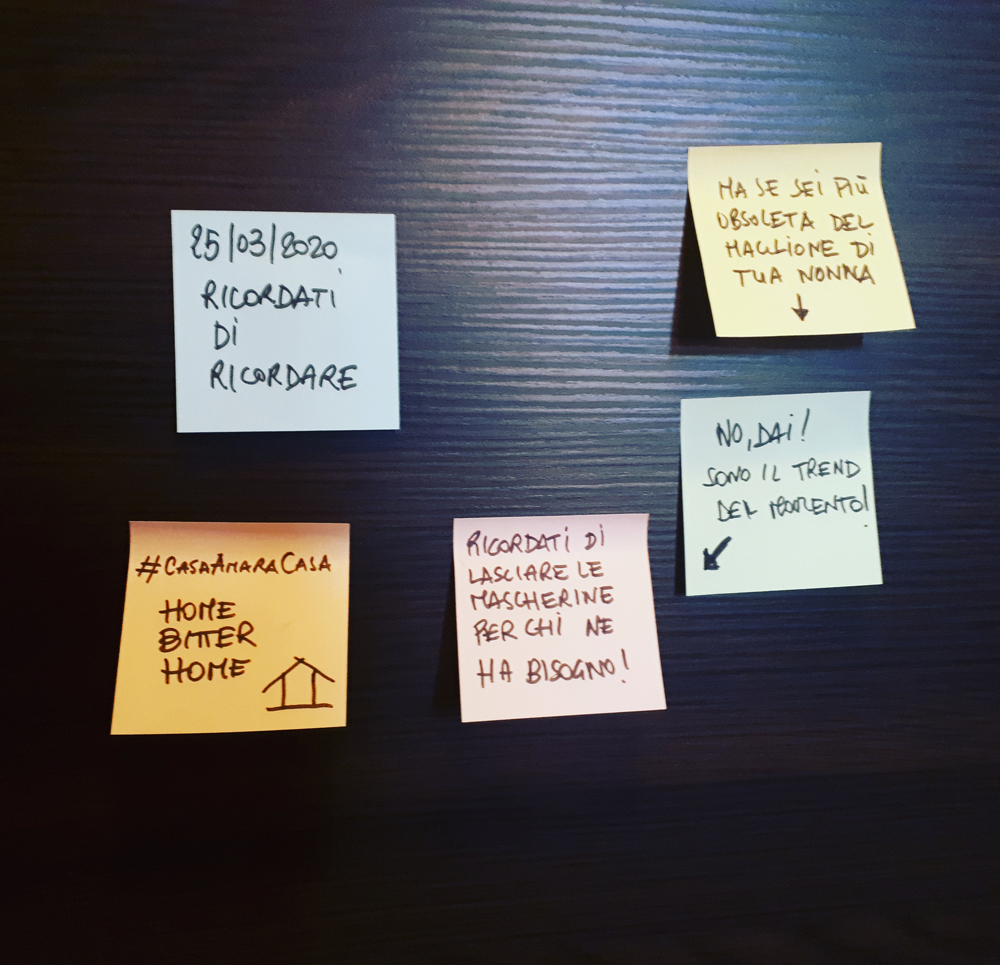 25/03/2020
RICORDATI
DI
RICORDARE
MA SE SEI PIÙ
OBSOLETA DEL
MAGLIONE DI
TUA NONNA
NO, DAI!
SONO IL TREND
DEL MOMENTO!
RICORDATI DI
LASCIARE LE
MASCHERINE
PER CHI NE
HA BISOGNO!
#CASAAMARACASA
HOME
BITTER
HOME